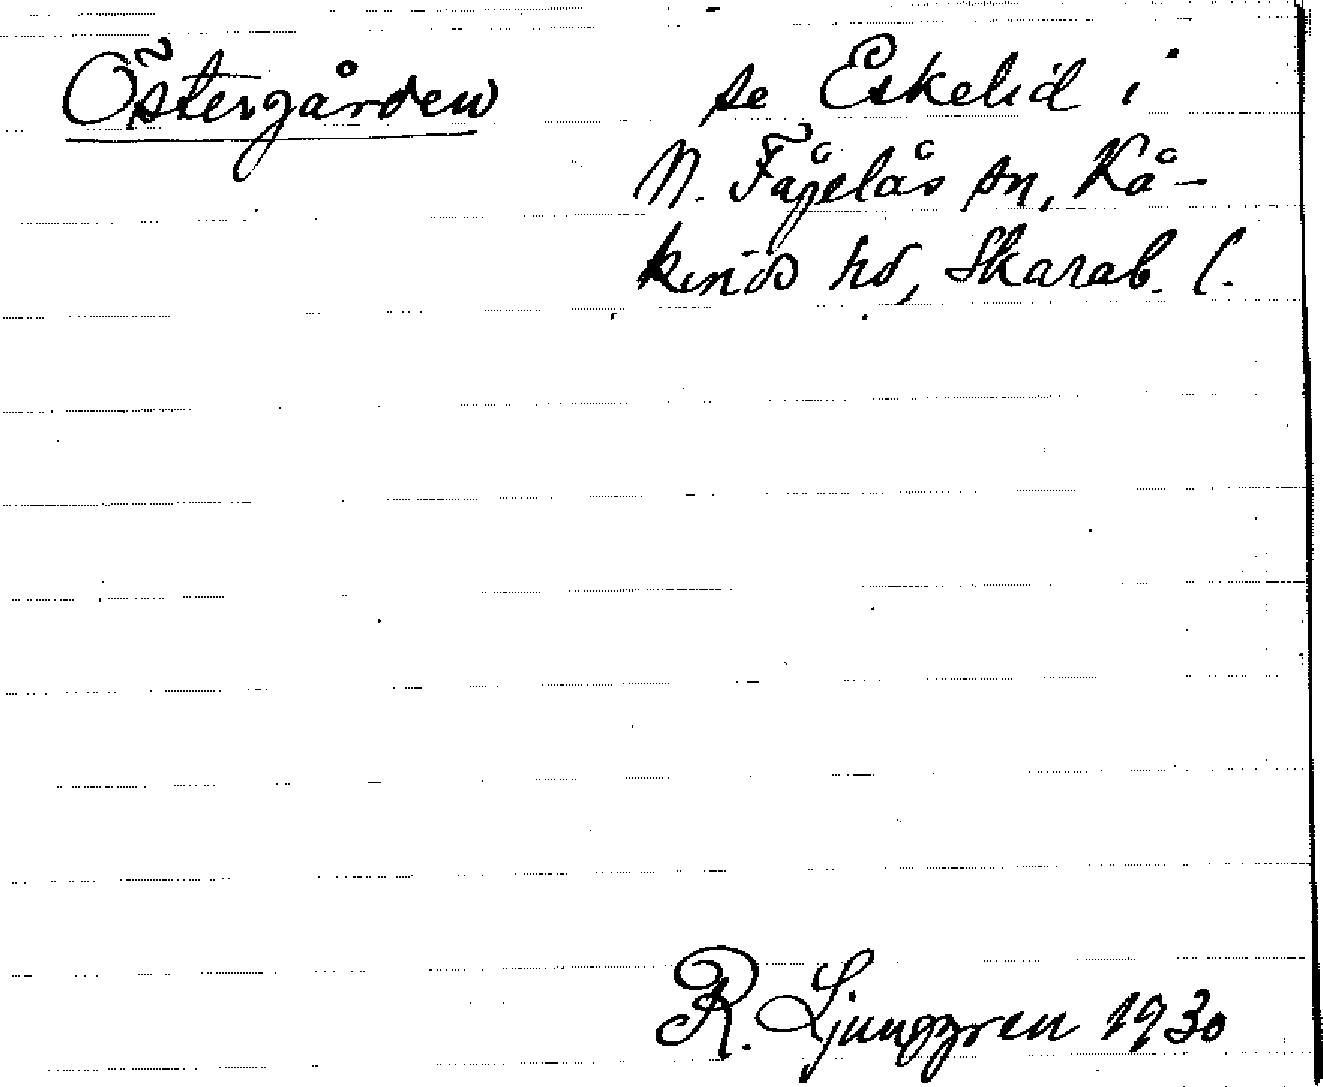 Östergården se Eskelid i
N. Fågelås sn, Kå-
kinds hd, Skarab. l.
R. Ljunggren 1930